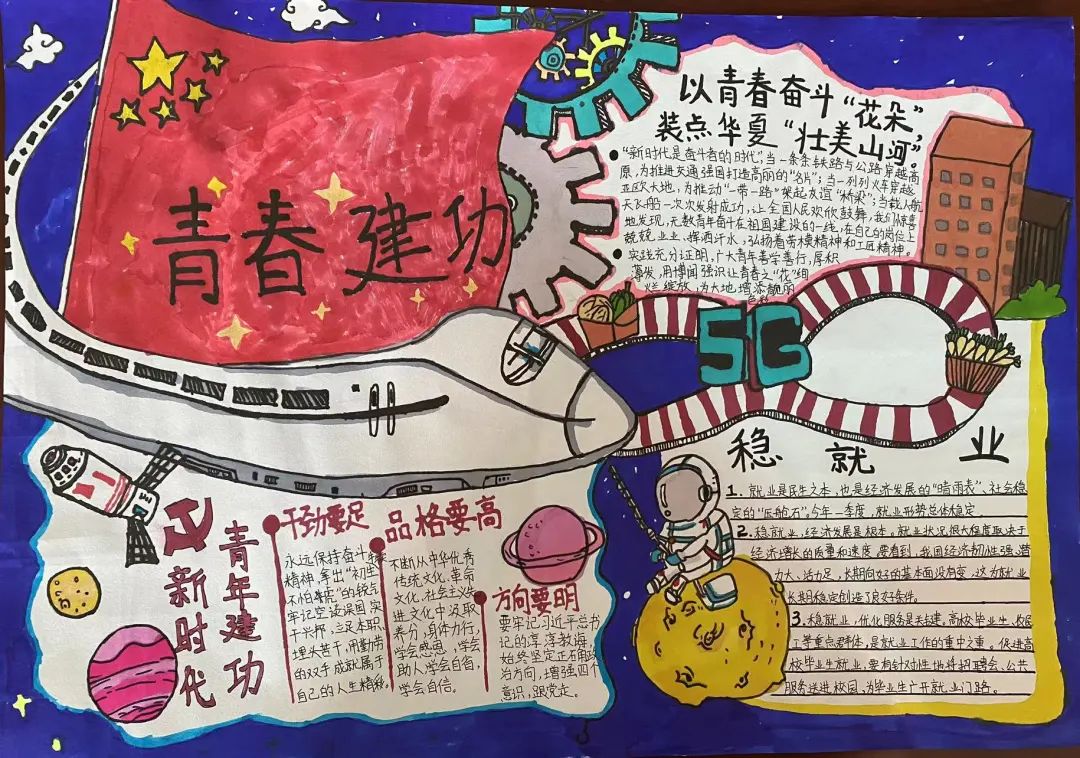 青春建功
以青春奋斗“花朵”，
装点华夏“壮美山河”。
“新时代是奋斗者的时代”，当一条条铁路与公路穿越高
原，为推进交通强国打造亮丽的“名片”；当一列列火车穿越
亚欧大地，为推动“一带一路”架起友谊“桥梁”；当载人航
天飞船一次次发射成功，让全国人民欢欣鼓舞，我们惊喜
地发现，无数青年奋斗在祖国建设的一线，在自己的岗位上
兢兢业业、挥洒汗水，弘扬着劳模精神和工匠精神。
实践充分证明，广大青年善学善行，厚积
薄发，用博闻强识让青春之“花”绚
烂绽放，为大地增添靓丽
色彩
5G
稳就业
1. 就业是民生之本，也是经济发展的“晴雨表”、社会稳
定的“压舱石”。今年一季度，就业形势总体稳定。
2. 稳就业，经济发展是根本。就业状况很大程度取决于
经济增长的质量和速度。要看到，我国经济韧性强、潜
力大、活力足，长期向好的基本面没有变，这为就业
长期稳定创造了良好条件。
3. 稳就业，优化服务是关键。高校毕业生、农民
工等重点群体，是就业工作的重中之重。促进高
校毕业生就业，要有针对性地将招聘会、公共
服务送进校园，为毕业生广开就业门路。
青年建功
新时代
干劲要足
永远保持奋斗
精神，拿出“初生
不怕虎”的锐气
牢记空谈误国实
干兴邦，立足本职、
埋头苦干，用勤劳
的双手成就属于
自己的人生精彩。
品格要高
不断从中华优秀
传统文化、革命
文化、社会主义先
进文化中汲取
养分，身体力行，
学会感恩、学会
助人学会自省，
学会自信。
方向要明
要牢记习近平总书
记的谆谆教诲，
始终坚定正确政
治方向，增强四个
意识，跟党走。